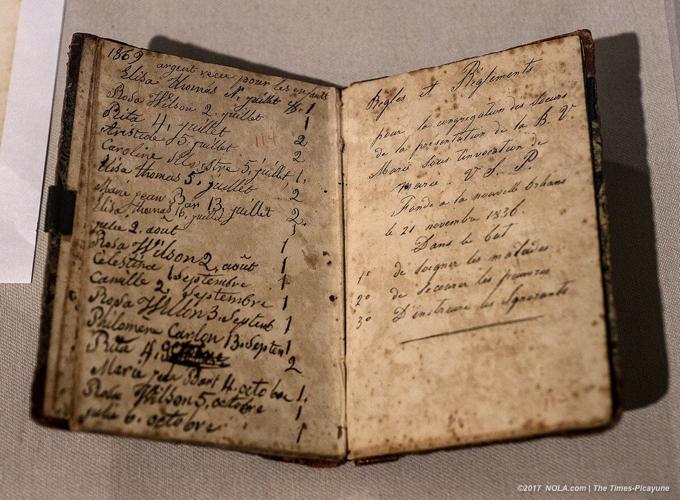 1869
argent recu pour les enfants
Elisa Thomas 1. juillet $. 1
Rosa Wilson 2. juillet 1
Rita 4. juillet 2
Aristide 5. juillet 2
Caroline Silvestre 5. juillet 1.
Elisa thomas 5. juillet 2
Marie jean 13. juillet 2
Elisa Thomas 16. juillet 3
julia 2. aout 1
Rosa Wilson 2. août 1
Celestina 1 septembre 1
Camille 2. septembre 1
Rosa Willin 3. Septem 1
Philomene Carlon 13. Septem 1
Rita 4. 2
Marie Bart 4. octobre 1.
Rosa Wilson 5. octobre 1
julia 6. octobre 1
114
Règles et Règlements
pour la congrégation des Soeurs
de la présentation de la B. V.
Marie sous l'invocation de
marie. V. S. P.
Fondé a la nouvelle Orleans
le 21 novembre 1836.
Dans le but
1° de soigner les malades
2° de Secourir les pauvres
3° D'instruire les Ignorants
©2017 NOLA.com | The Times-Picayune